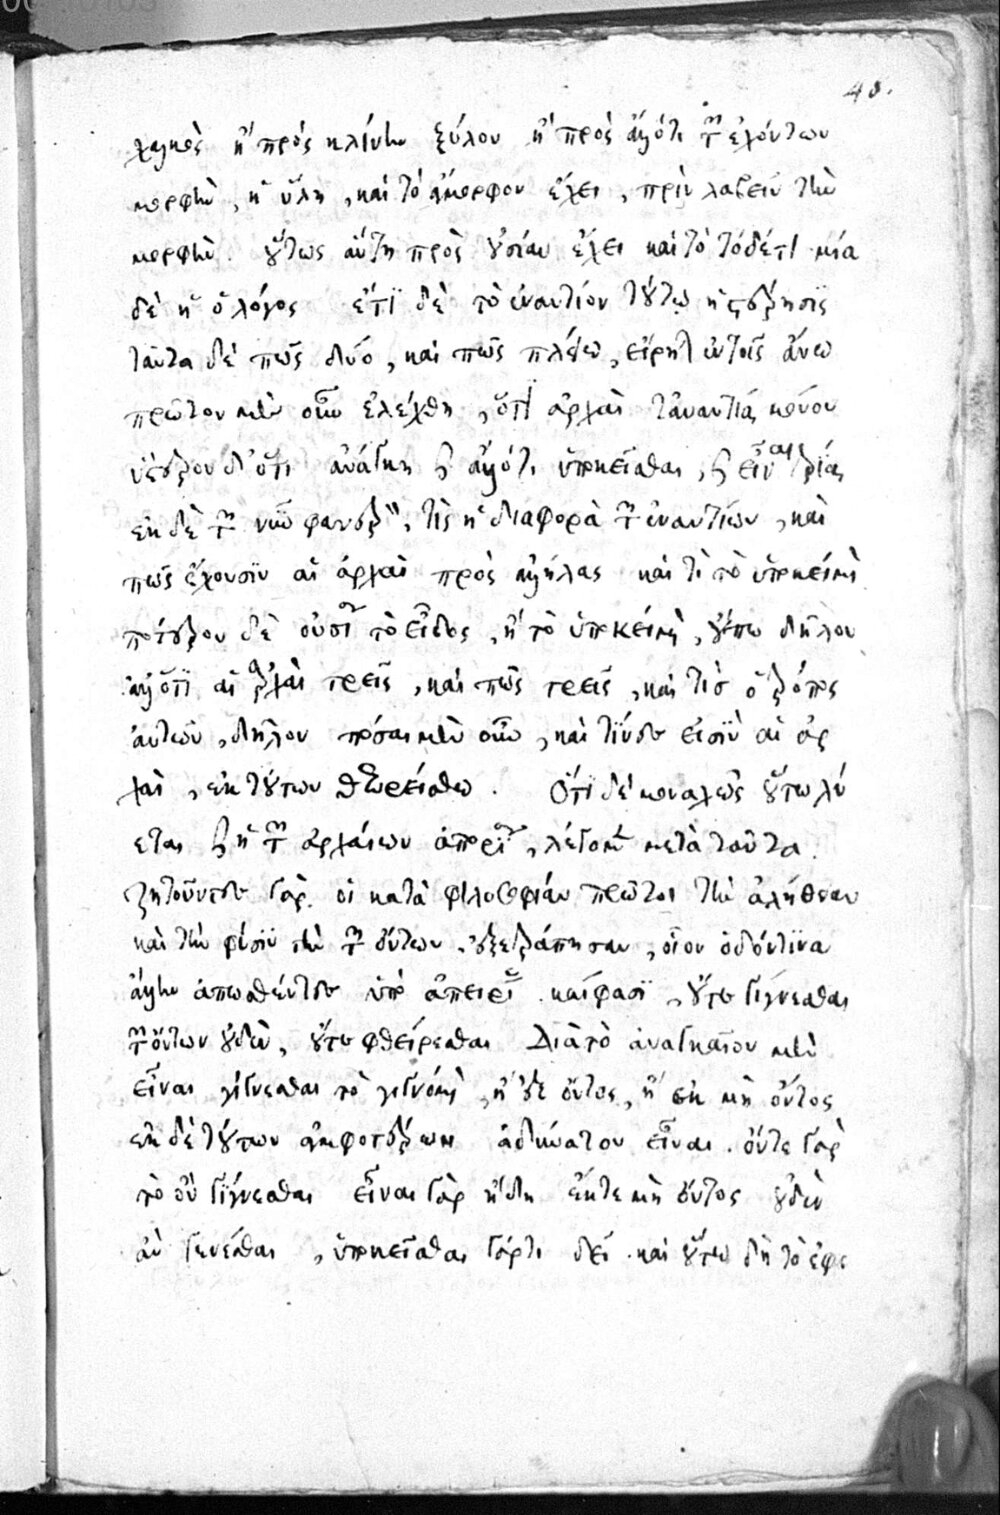 48.
χαλκὸς ἢ πρὸς κλίνην ξύλον ἢ πρὸς ἄλλό τι τῶν ἐχόντων
μορφὴν, ἡ ὕλη, καὶ τὸ ἄμορφον ἔχει, πρὶν λαβεῖν τὴν
μορφὴν. οὕτως αὕτη πρὸς οὐσίαν ἔχει καὶ τὸ τόδέ τι μία
δὲ ἡ ὁ λόγος ἔτι δὲ τὸ ἐναντίον τούτῳ ἡ στέρησις
ταῦτα δὲ πῶς δύο, καὶ πῶς πλείω, εἴρηται ἐν τοῖς ἄνω
πρῶτον μὲν οὖν ἐλέχθη, ὅτι ἀρχαὶ τἀναντία μόνον
ὕστερον δ' ὅτι ἀνάγκη καὶ ἄλλό τι ὑποκεῖσθαι, καὶ εἶναι τρία
ἐκ δὲ τῶν νῦν φανερὸν, τίς ἡ διαφορὰ τῶν ἐναντίων, καὶ
πῶς ἔχουσιν αἱ ἀρχαὶ πρὸς ἀλλήλας καὶ τί τὸ ὑποκείμενον
πότερον δὲ οὐσία τὸ εἶδος, ἢ τὸ ὑποκείμενον, οὔπω δῆλον
ἀλλ' ὅτι αἱ ἀρχαὶ τρεῖς, καὶ πῶς τρεῖς, καὶ τίς ὁ τρόπος
αὐτῶν, δῆλον πόσαι μὲν οὖν, καὶ τίνες εἰσὶν αἱ ἀρ
χαὶ, ἐκ τούτων θεωρείσθω. Ὅτι δὲ μοναχῶς οὕτω λύ
εται καὶ ἡ τῶν ἀρχαίων ἀπορία, λέγομεν μετὰ ταῦτα.
ζητοῦντες γὰρ οἱ κατὰ φιλοσοφίαν πρῶτοι τὴν ἀλήθειαν
καὶ τὴν φύσιν τὴν τῶν ὄντων. ἐξετράπησαν, οἷον ὁδόν τινα
ἄλλην ἀπωσθέντες ὑπὸ ἀπειρίας. καί φασι, οὔτε γίγνεσθαι
τῶν ὄντων οὐδὲν, οὔτε φθείρεσθαι Διὰ τὸ ἀναγκαῖον μὲν
εἶναι γίγνεσθαι τὸ γιγνόμενον, ἢ ἐξ ὄντος, ἢ ἐκ μὴ ὄντος
ἐκ δὲ τούτων ἀμφοτέρων ἀδύνατον εἶναι. οὔτε γὰρ
τὸ ὂν γίγνεσθαι εἶναι γὰρ ἤδη ἔκ τε μὴ ὄντος οὐδὲν
ἂν γενέσθαι, ὑποκεῖσθαι γάρ τι δεῖ. καὶ οὕτω δὴ τὸ ἐφε